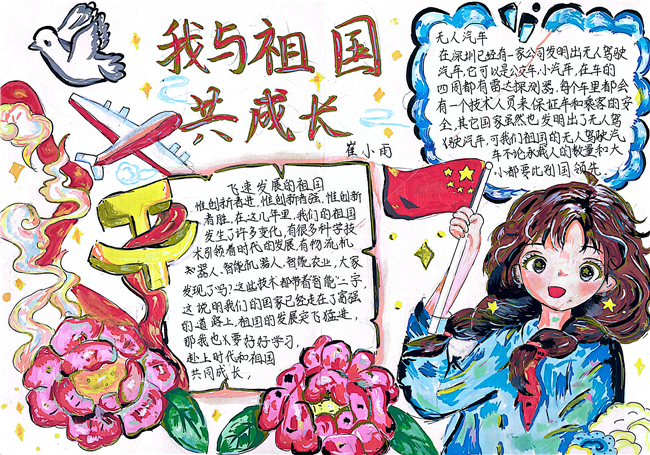 我与祖国
共成长
崔小雨
无人汽车
在深圳已经有一家公司发明出无人驾驶
汽车,它可以是公交车,小汽车,在车的
四周都有雷达探测器,每个车里都会
有一个技术人员来保证车和乘客的安
全,其它国家虽然也发明出了无人驾
驶汽车,可我们祖国的无人驾驶汽
车不论承载人的数量和大
小都要比别国领先.
飞速发展的祖国
惟创新者进,惟创新者强,惟创新
者胜.在这几年里,我们的祖国
发生了许多变化,有很多科学技
术引领着时代的发展,有物流机
器人,智能机器人,智能农业,大家
发现了吗?这些技术都带着智能"二字,
这说明我们的国家已经走在了富强
的道路上,祖国的发展突飞猛进,
那我也要好好学习,
赴上时代和祖国
共同成长,